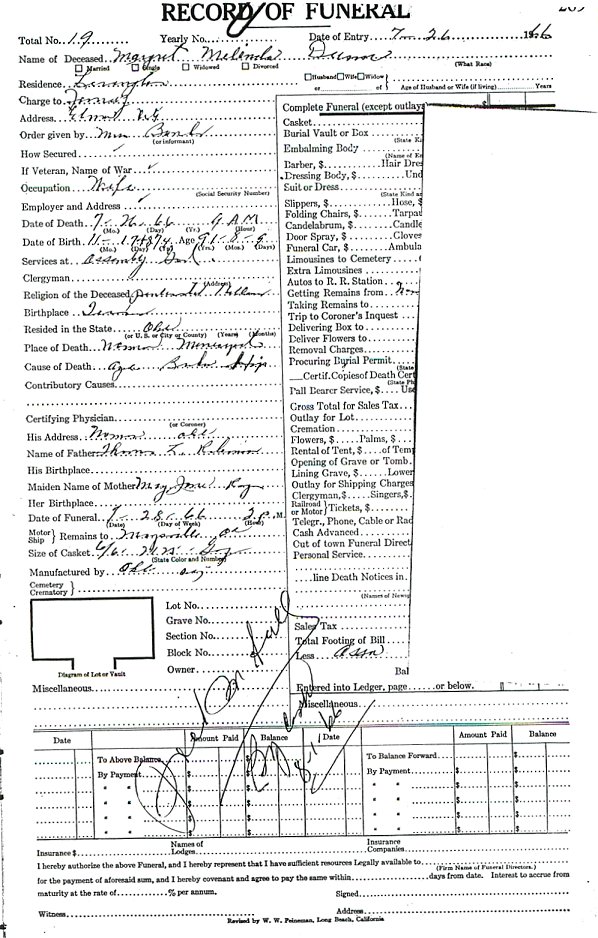 RECORD OF FUNERAL
Total No. 19 Yearly No. Date of Entry 7 - 26 1966
Name of Deceased Margret Melinda
Married Single Widowed Divorced (What Race)
Residence
Husband Wife Widow
or of Age of Husband or Wife (if living) Years
Charge to
Address
Order given by Mrs
(or informant)
How Secured
If Veteran, Name of War
Occupation Wife
(Social Security Number)
Employer and Address
Date of Death 7 - 26 - 66 9 A M
(Mo.) (Day) (Yr.) (Hour)
Date of Birth 11 - 17 - 1874 Age 91 - 8 - 9
(Mo.) (Day) (Yr.) (Yrs.) (Mos.) (Days)
Services at Assembly God
Clergyman
(Address)
Religion of the Deceased
Birthplace
Resided in the State Ohio
(or U. S. or City or County) (Years) (Months)
Place of Death
Cause of Death Age Broken Hip
Contributory Causes
Certifying Physician
(or Coroner)
His Address
Name of Father Thomas
His Birthplace
Maiden Name of Mother May Jane
Her Birthplace
Date of Funeral 7 - 28 - 66 2 P. M.
(Date) (Day of Week) (Hour)
Motor Ship Remains to Maysville
Size of Casket 6/6
(State Color and Number)
Manufactured by
Cemetery
Crematory
Complete Funeral (except outlays)
Casket
Burial Vault or Box
(State K
Embalming Body
(Name of E
Barber, $ Hair Dre
Dressing Body, $ Und
Suit or Dress
(State Kind a
Slippers, $ Hose, $
Folding Chairs, $ Tarpa
Candelabrum, $ Candl
Door Spray, $ Gloves
Funeral Car, $ Ambula
Limousines to Cemetery
Extra Limousines
Autos to R. R. Station
Getting Remains from
Taking Remains to
Trip to Coroner's Inquest
Delivering Box to
Deliver Flowers to
Removal Charges
Procuring Burial Permit
(State
Certif. Copies of Death Cert
(State Ph
Pall Bearer Service, $ Use
Gross Total for Sales Tax
Outlay for Lot
Cremation
Flowers, $ Palms, $
Rental of Tent, $ of Temp
Opening of Grave or Tomb
Lining Grave, $ Lower
Outlay for Shipping Charges
Clergyman, $ Singers, $
Railroad or Motor Tickets, $
Telegr., Phone, Cable or Rad
Cash Advanced
Out of town Funeral Direct
Personal Service
line Death Notices in
(Names of Newsp
Sales Tax
Total Footing of Bill
Less Assn
Bal
Entered into Ledger, page or below.
Miscellaneous
Lot No.
Grave No.
Section No.
Block No.
Owner
Diagram of Lot or Vault
Miscellaneous
Date Amount Paid Balance Date Amount Paid Balance
To Above Balance $ $ To Balance Forward $ $
By Payment $ $ By Payment $ $
" " $ $ " " $ $
" " $ $ " " $ $
" " $ $ " " $ $
" " $ $ " " $ $
8-1-66
Insurance $ Names of Lodges Insurance Companies
I hereby authorize the above Funeral, and I hereby represent that I have sufficient resources Legally available to
(Firm Name of Funeral Directors.)
for the payment of aforesaid sum, and I hereby covenant and agree to pay the same within days from date. Interest to accrue from
maturity at the rate of % per annum. Signed
Witness Address
Revised by W. W. Feineman, Long Beach, California